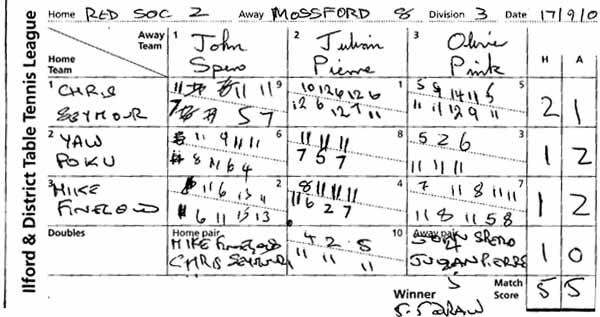 Ilford & District Table Tennis League
Home RED SOC 2 Away MOSSFORD 8 Division 3 Date 17/9/0
Away Team
Home Team
1 John Spero
2 Julian Pierre
3 Olivier Pink
H A
1 CHRIS SEYMOUR
9
11 11 11
7 5 7
1
10 12 6 12 6
12 6 12 7 11
5
5 9 14 11 5
11 11 12 9 11
2 1
2 YAW POKU
6
11 9 11 11
8 11 6 4
8
11 11 11
7 5 7
3
5 2 6
11 11 11
1 2
3 MIKE
2
11 6 13 11
6 11 15 13
4
8 11 11 11
11 6 2 7
7
7 11 8 11 11
11 8 11 5 8
1 2
Doubles
Home pair
MIKE
CHRIS SEYMOUR
10
4 2 8
11 11 11
Away pair
JOHN SPERO
JULIAN PIERRE
1 0
Winner
5-5 DRAW
Match Score
5 5